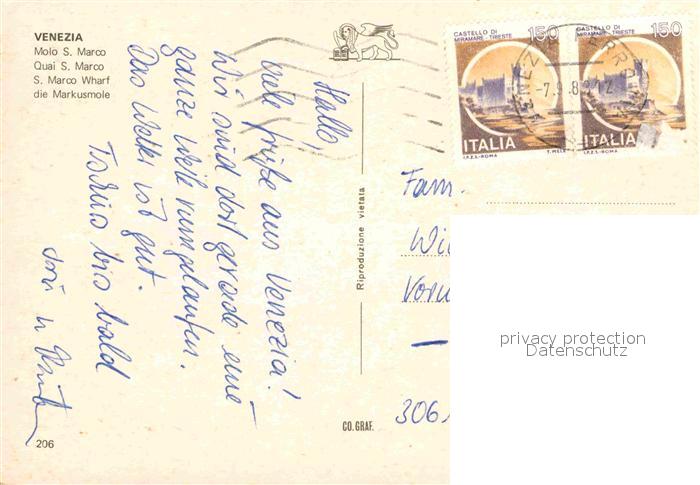 VENEZIA
Molo S. Marco
Quai S. Marco
S. Marco Wharf
die Markusmole
Hallo,
viele Grüße aus Venezia!
Wir sind dort gerade eine
ganze Weile rumgelaufen.
Das Wetter ist gut.
Tschüs bis bald
206
Riproduzione vietata
CO. GRAF.
CASTELLO DI
MIRAMARE - TRIESTE
150
ITALIA
I.P.Z.S.-ROMA
T. MELE
CASTELLO DI
MIRAMARE - TRIESTE
150
ITALIA
I.P.Z.S.-ROMA
Fam.
306
privacy protection
Datenschutz